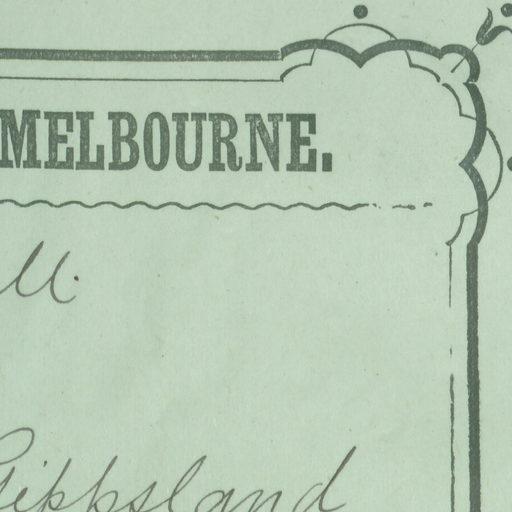 MELBOURNE.
Gippsland